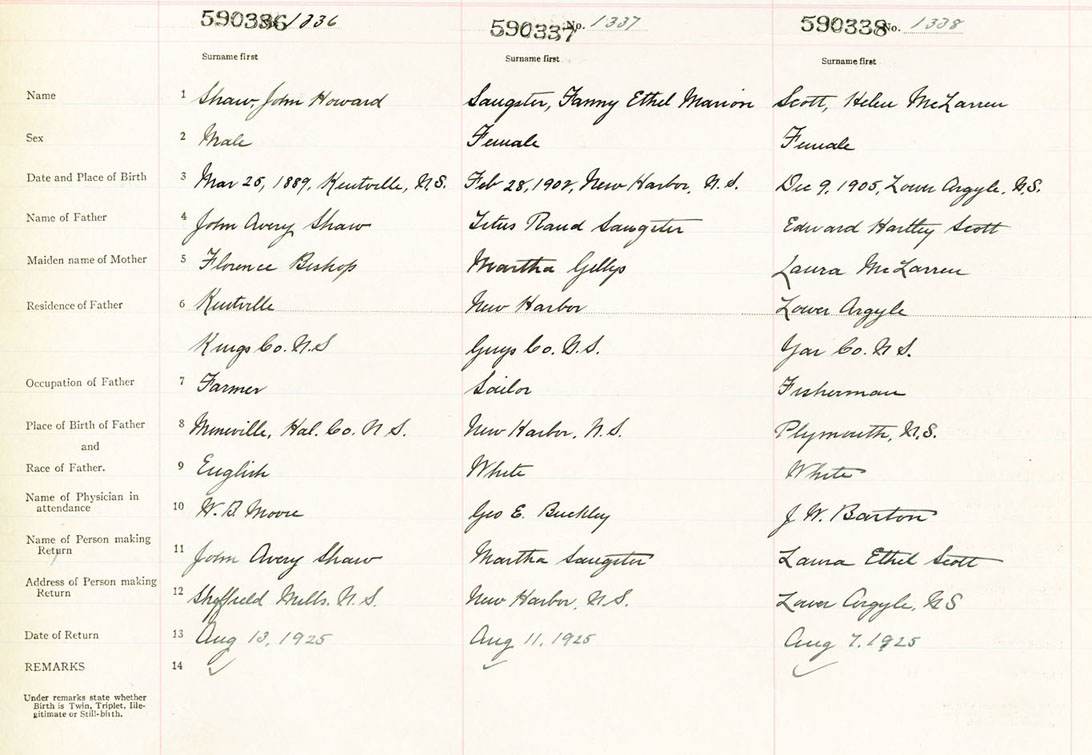 590336 1336 590337 No. 1337 590338 No. 1338
Surname first Surname first Surname first
Name 1 Shaw, John Howard Sangster, Fanny Ethel Marion Scott, Helen McLarren
Sex 2 Male Female Female
Date and Place of Birth 3 Mar 25, 1889, Kentville, N.S. Feb 28, 1902, New Harbor, N.S. Dec 9, 1905, Lower Argyle, N.S.
Name of Father 4 John Avery Shaw Titus Rand Sangster Edward Hartley Scott
Maiden name of Mother 5 Florence Bishop Martha Laura McLarren
Residence of Father 6 Kentville New Harbor Lower Argyle
Kings Co. N.S Guys Co. N.S. Yar Co. N S.
Occupation of Father 7 Farmer Sailor Fisherman
Place of Birth of Father 8 Hal. Co. N S. New Harbor, N.S. Plymouth, N.S.
and
Race of Father. 9 English White White
Name of Physician in
attendance 10 W. B. Moore Geo E. Buckley J W. Barton
Name of Person making
Return 11 John Avery Shaw Martha Sangster Laura Ethel Scott
Address of Person making
Return 12 Sheffield Mills. N.S. New Harbor, N.S. Lower Argyle, N S
Date of Return 13 Aug 13, 1925 Aug 11, 1925 Aug 7, 1925
REMARKS 14
Under remarks state whether
Birth is Twin, Triplet, Ille-
gitimate or Still-birth.